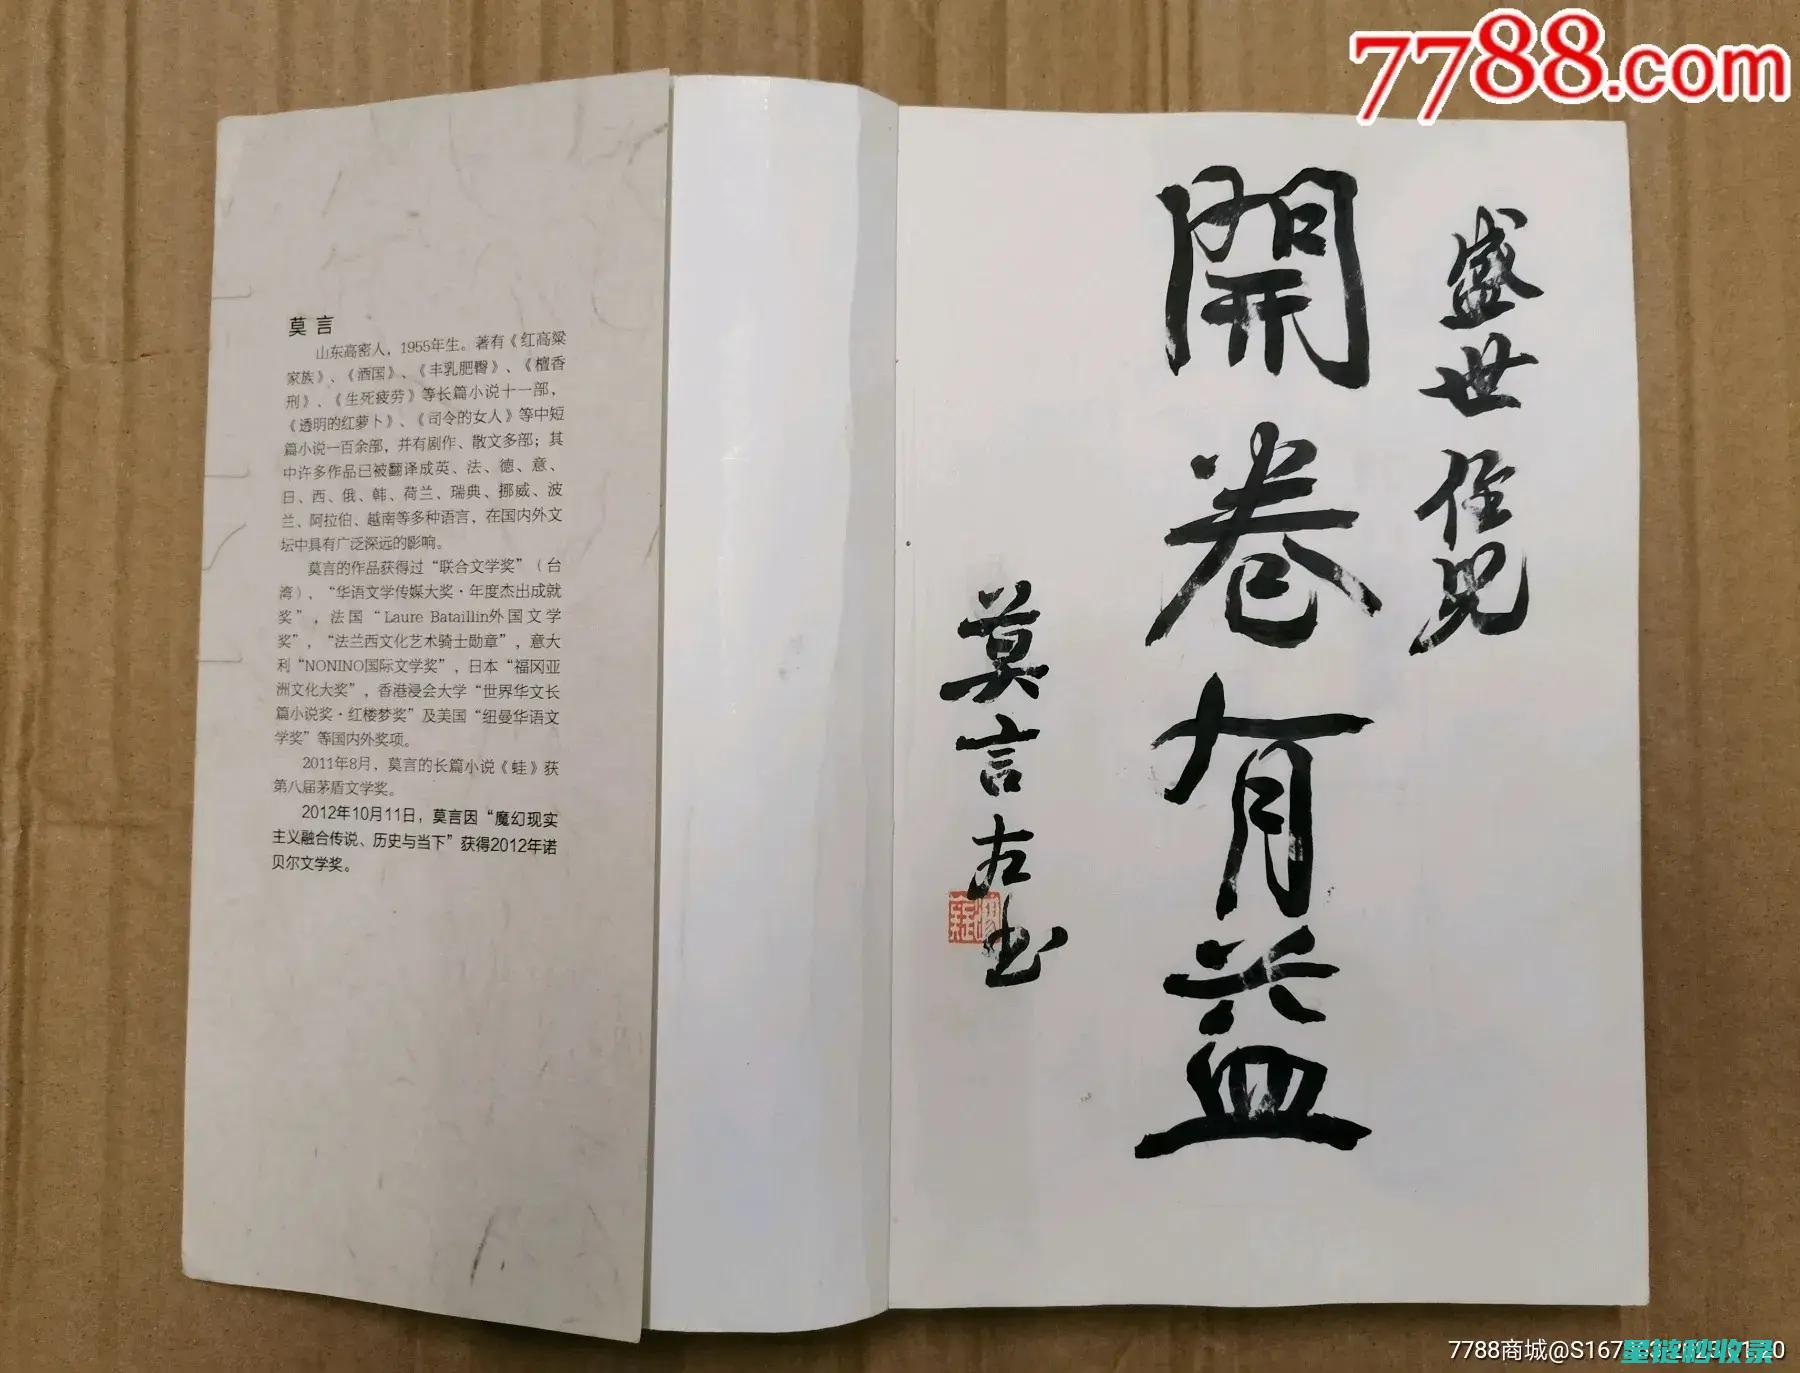 7788.com
莫言
山东高密人，1955年生。著有《红高粱
家族》、《酒国》、《丰乳肥臀》、《檀香
刑》、《生死疲劳》等长篇小说十一部，
《透明的红萝卜》、《司令的女人》等中短
篇小说一百余部，并有剧作、散文多部；其
中许多作品已被翻译成英、法、德、意、
日、西、俄、韩、荷兰、瑞典、挪威、波
兰、阿拉伯、越南等多种语言，在国内外文
坛中具有广泛深远的影响。
莫言的作品获得过“联合文学奖”（台
湾），“华语文学传媒大奖·年度杰出成就
奖”，法国“Laure Bataillin外国文学
奖”，“法兰西文化艺术骑士勋章”，意大
利“NONINO国际文学奖”，日本“福冈亚
洲文化大奖”，香港浸会大学“世界华文长
篇小说奖·红楼梦奖”及美国“纽曼华语文
学奖”等国内外奖项。
2011年8月，莫言的长篇小说《蛙》获
第八届茅盾文学奖。
2012年10月11日，莫言因“魔幻现实
主义融合传说、历史与当下”获得2012年诺
贝尔文学奖。
盛世侄兒
開卷有益
莫言左书
7788商城@S167
星链秒收录